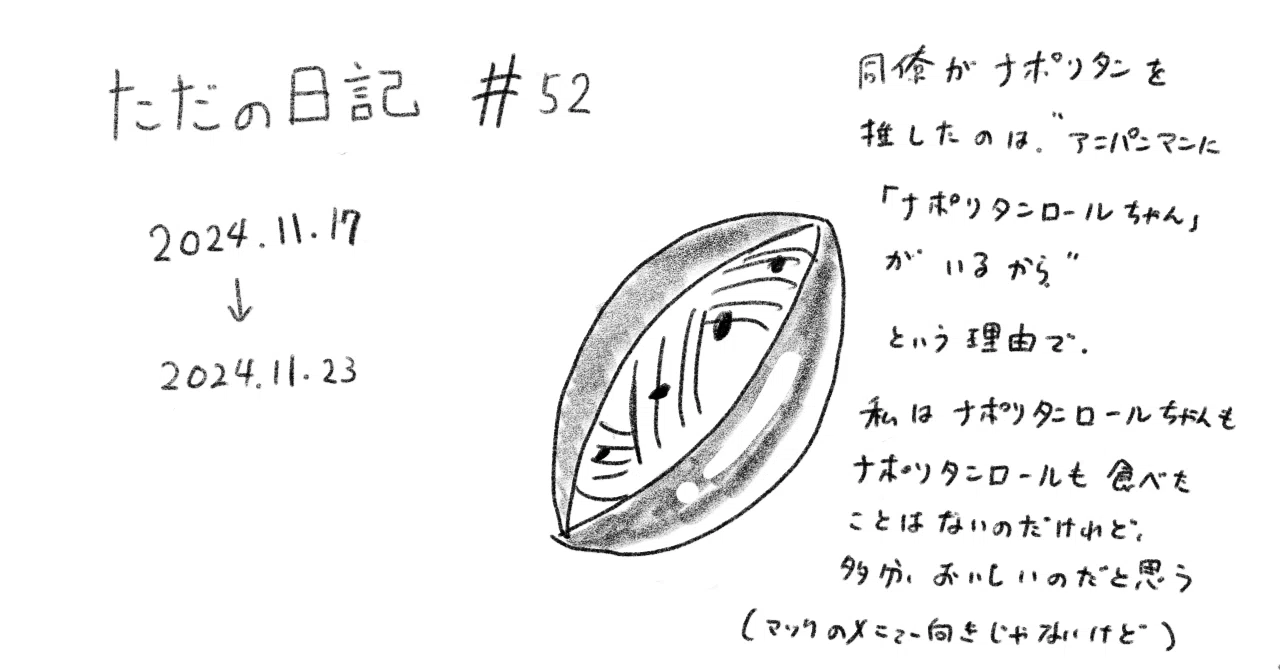 ただの日記 #52
2024.11.17
↓
2024.11.23
同僚がナポリタンを
推したのは、"アンパンマンに
「ナポリタンロールちゃん」
がいるから"
という理由で、
私はナポリタンロールちゃんも
ナポリタンロールも食べた
ことはないのだけれど、
多分、おいしいのだと思う
(マックのメニュー向きじゃないけど)